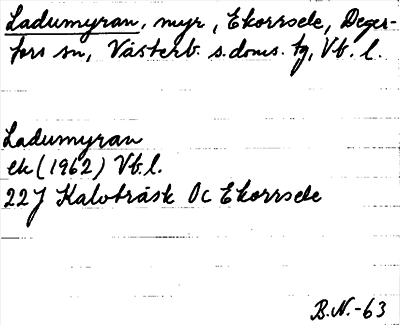 Ladumyran, myr, Ekorrsele, Deger-
fors sn, Västerb. s. doms. tg, Vb. l.
Ladumyran
ek (1962) Vb. l.
22J Kalvträsk Oc Ekorrsele
B.N.-63